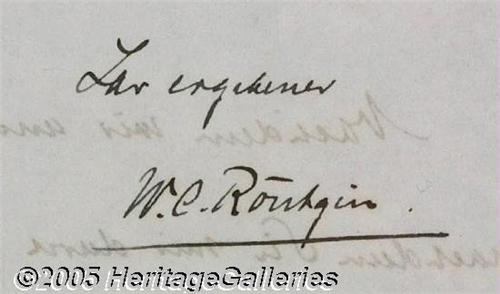 Ihr ergebener
W. C. Röntgen.
©2005 HeritageGalleries